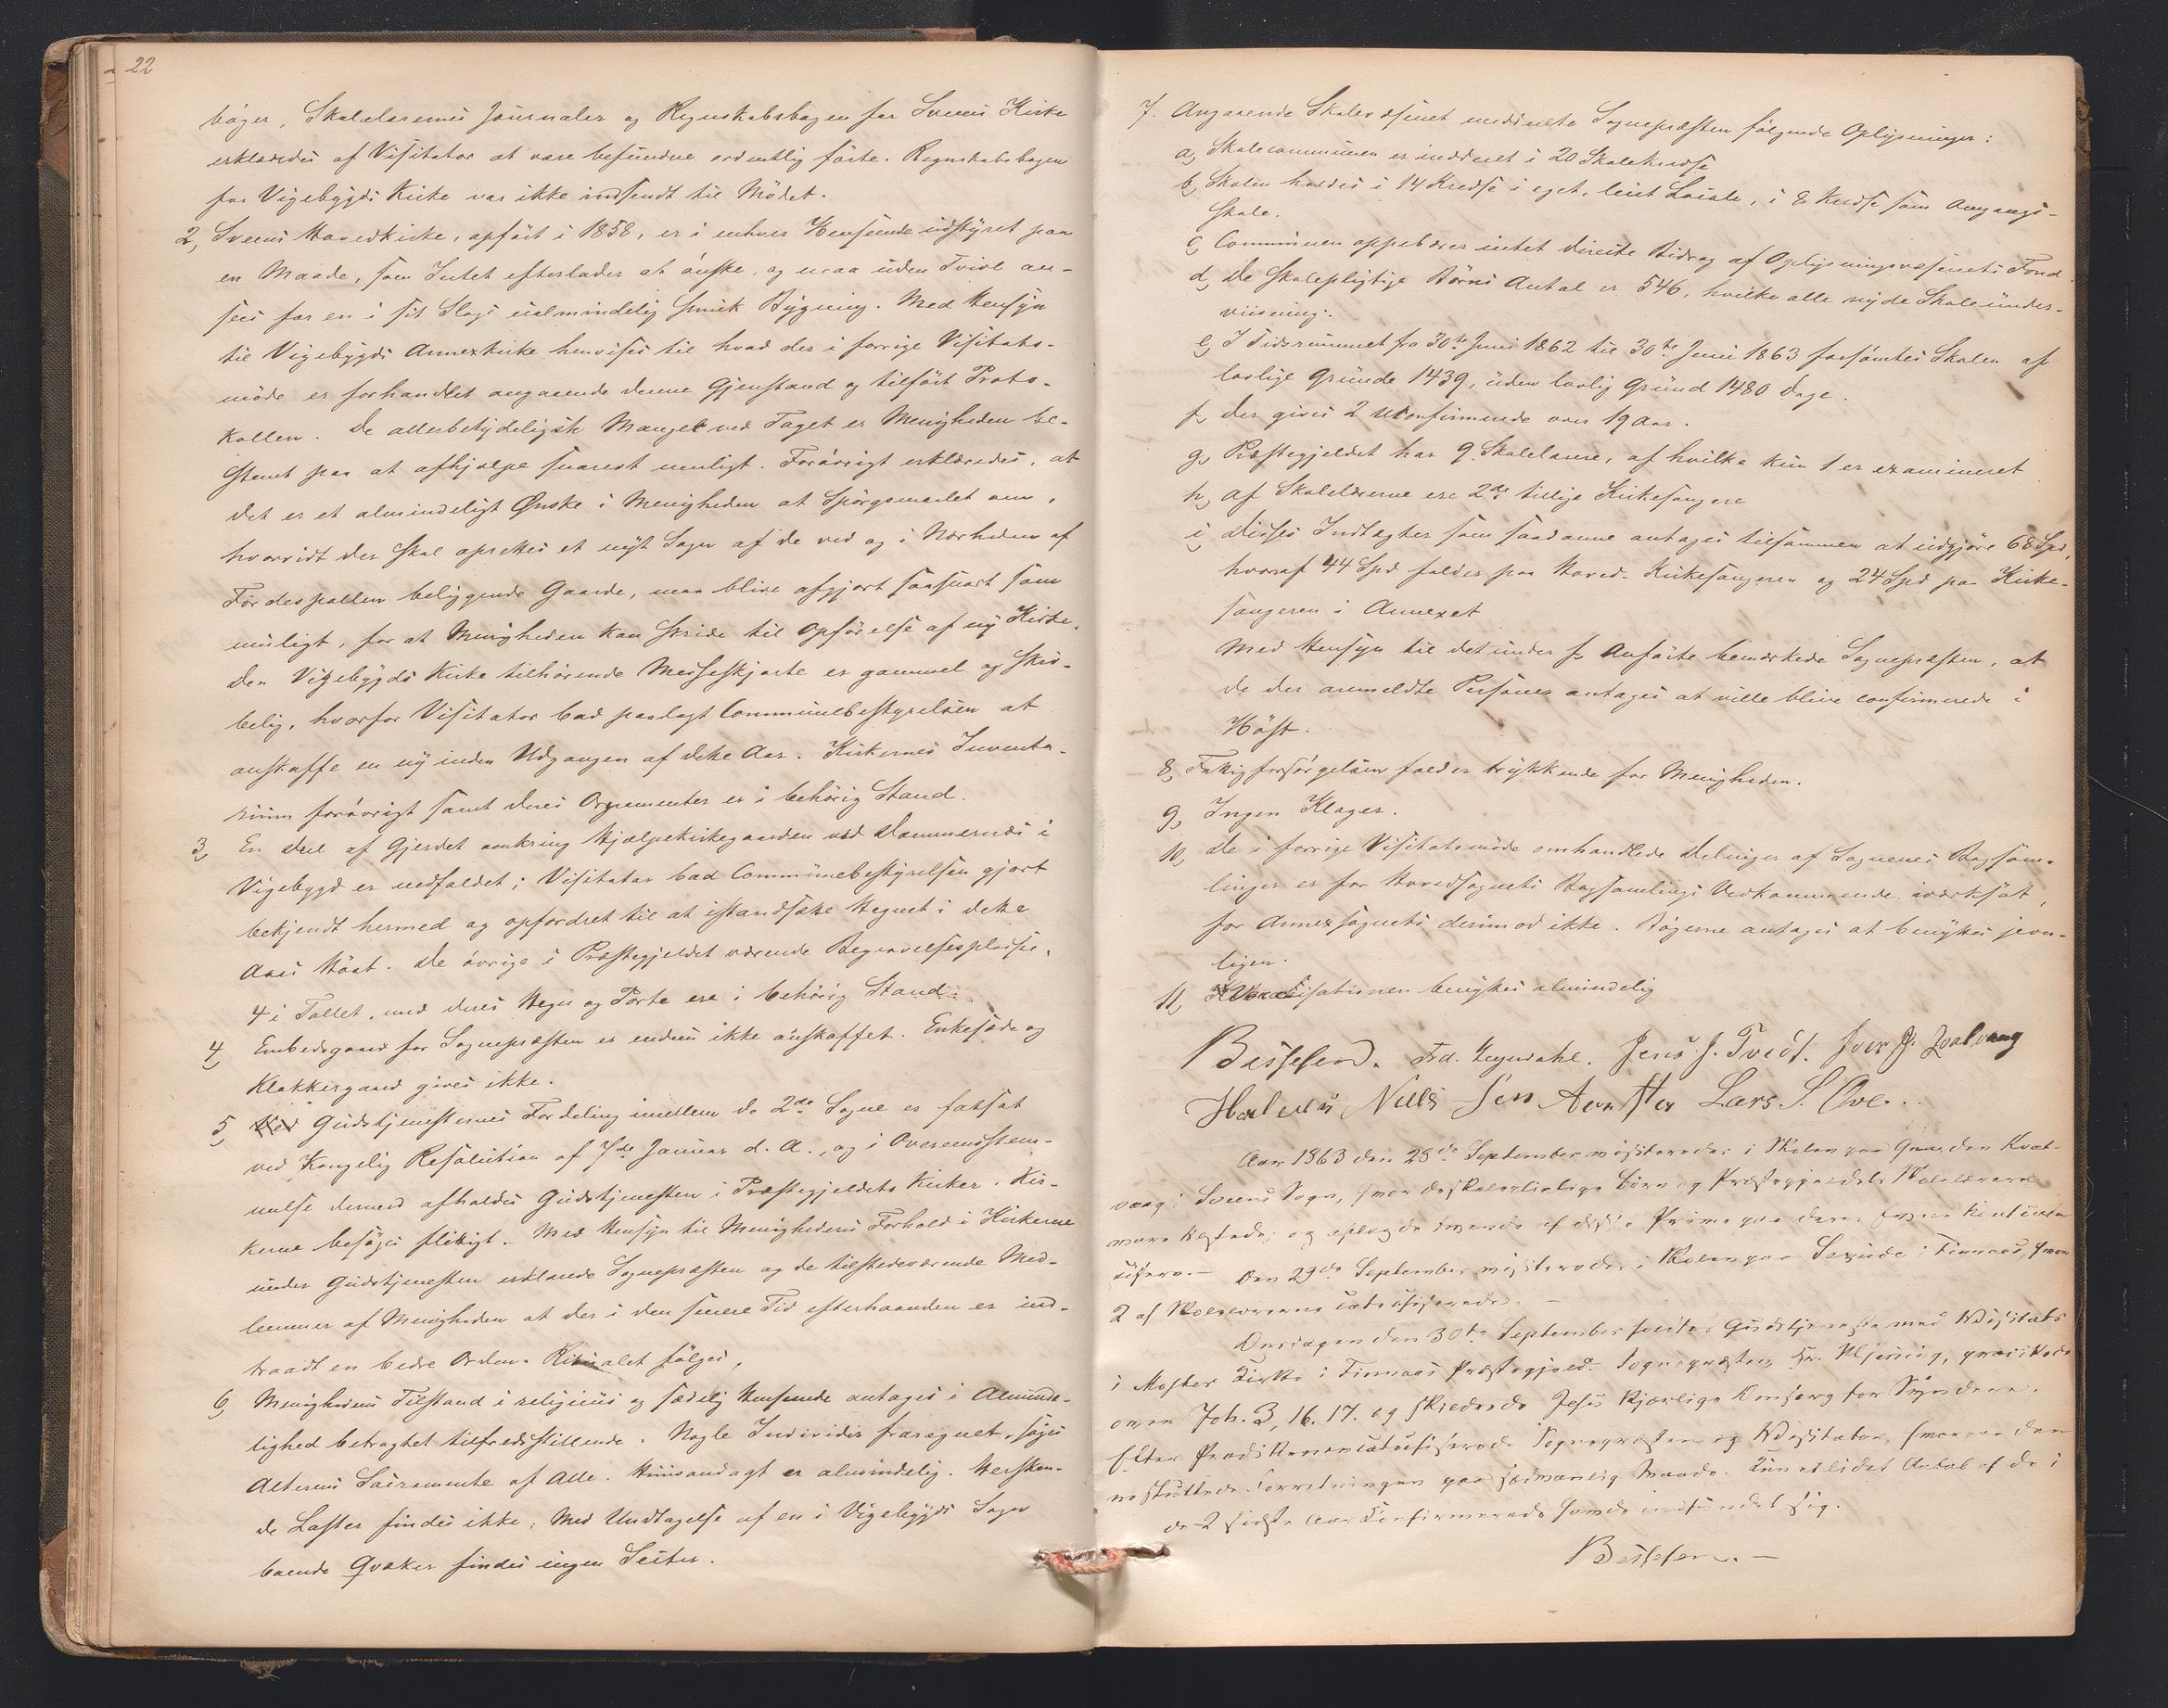 22
bøger, Skolelærernes Journaler og Regnskabsbogen for Sveens Kirke
erklæredes af Visitator at være befundne ordentlig førte. Regnskabsbogen
for Vigebygds Kirke var ikke indsendt til Mødet.
2, Sveens Hovedkirke, opført i 1858, er i enhver Henseende udstyret paa
en Maade, som Intet efterlader at ønske, og maa uden Tvivl an-
sees for en i sit Slags ualmindelig smuk Bygning. Med Hensyn
til Vigebygds Annexkirke henvises til hvad der i forrige Visitats-
møde er forhandlet angaaende denne Gjenstand og tilført Proto-
kollen. De allerbetydeligste Mangel ved Taget er Menigheden be-
stemt paa at afhjælpe snarest muligt. Forøvrigt erklæredes, at
det er et almindeligt Ønske i Menigheden at Spørgsmaalet om,
hvorvidt der skal oprettes et nyt Sogn af de ved og i Nærheden af
Førdespollen beliggende Gaarde, maa blive afgjort saasnart som
muligt, for at Menigheden kan skride til Opførelse af ny Kirke.
Den Vigebygds Kirke tilhørende Messeskjorte er gammel og skrø-
belig, hvorfor Visitator bad paalagt Communebestyrelsen at
anskaffe en ny inden Udgangen af dette Aar. Kirkernes Inventa-
rium forøvrigt samt deres Ornementer er i behørig Stand.
3, En Deel af Gjerdet omkring Hjælpekirkegaarden ved Dommersnæs i
Vigebygd er nedfaldet; Visitator bad Communebestyrelsen gjort
bekjendt hermed og opfordret til at istandsætte Hegnet i dette
Aars Høst. De øvrige i Præstegjeldet værende Begravelsespladse,
4 i Tallet, med deres Hegn og Porte ere i behørig Stand.
4, Embedsgaard for Sognepræsten er endnu ikke anskaffet. Enkesæde og
Klokkergaard gives ikke.
5, Gudstjenesternes Fordeling imellem de 2de Sogne er fastsat
ved Kongelig Resolution af 7de Januar d. A., og i Overeensstem-
melse dermed afholdes Gudstjenesten i Præstegjeldets Kirker. Kir-
kerne besøges flittigt. Med Hensyn til Menighedens Forhold i Kirkerne
under Gudstjenesten erklærede Sognepræsten og de tilstedeværende Med-
lemmer af Menigheden at der i den senere Tid efterhaanden er ind-
traadt en bedre Orden. Ritualet følges.
6, Menighedens Tilstand i religieus og sædelig Henseende antages i Alminde-
lighed betragtet tilfredsstillende. Nogle Individer fraregnet, søges
Alterens Sacramente af Alle. Huusandagt er almindelig. Herskende
de Laster findes ikke; Med Undtagelse af en i Vigebygds Sogn
boende Qvæker findes ingen Secter.
7. Angaaende Skolevæsenet meddeelte Sognepræsten følgende Oplysninger:
a, Skolecommunen er inddeelt i 20 Skolekredse
b, Skolen holdes i 14 Kredse i eget, leiet Locale, i 6 Kredse som Omgangs-
skole.
c, Communen oppebærer intet directe Bidrag af Oplysningsvæsenets Fond.
d, De skolepligtige Børns Antal er 546, hvilke alle nyde Skoleunder-
viisning.
e, I Tidsrummet fra 30te Juni 1862 til 30te Juni 1863 forsømtes Skolen af
lovlige Grunde 1439, uden lovlig Grund 1480 Dage.
f, Der gives 2 Uconfirmerede over 19 Aar.
g, Præstegjeldet har 9 Skolelærere, af hvilke kun 1 er examineret
h, Af Skolelærerne ere 2de tillige Kirkesangere
i, Disses Indtægter som saadanne antages tilsammen at udgjøre 68 Spd,
hvoraf 44 Spd falder paa Hoved-Kirkesangeren og 24 Spd paa Kirke-
sangeren i Annexet
Med Hensyn til det under f, Anførte bemærkede Sognepræsten, at
de der anmeldte Personer antages at ville blive confirmerede i
Høst.
8, Fattigforsørgelsen falder trykkende for Menigheden.
9, Ingen Klager.
10, De i forrige Visitatsmøde omhandlede Delinger af Sognenes Bogsam-
linger er for Hovedsognets Bogsamlings Vedkommende iværksat,
for Annexsognets derimod ikke. Bøgerne antages at benyttes jevn-
ligen.
11, Vaccinationen benyttes almindelig
Besseesen. Frd. Jens J. Tvedt. Iver J.
Nils Jen Lars S. Ove.
Aar 1863 den 28de September møjstoredes i Skolen paa Gaarden Kval-
vaag i Sveens Sogn, hvor de skolepligtige Børn og Præstegjeldets Skolelærere
vare tilstede; og aflagde af disse Prøve paa deres
ciseres. — Den 29de September møjsteredes i Skolen paa i Finnaas, hvor
2 af Skolelærerne catechiserede. —
Onsdagen den 30te September holdtes Gudstjeneste med Visitats
i Moster Kirke i Finnaas Præstegjeld. Sognepræsten, Hr. prædikede
over Joh. 3, 16. 17. og skildrede Jesu kjærlige Omsorg for Syndere.
Efter Prædikenen catechiserede Sognepræsten og Visitator, hvorpaa den
sluttede Forretningen paa sædvanlig Maade. Kun et lidet Antal af de i
de 2 sidste Aar Confirmerede havde indfundet sig.
Besseesen. —